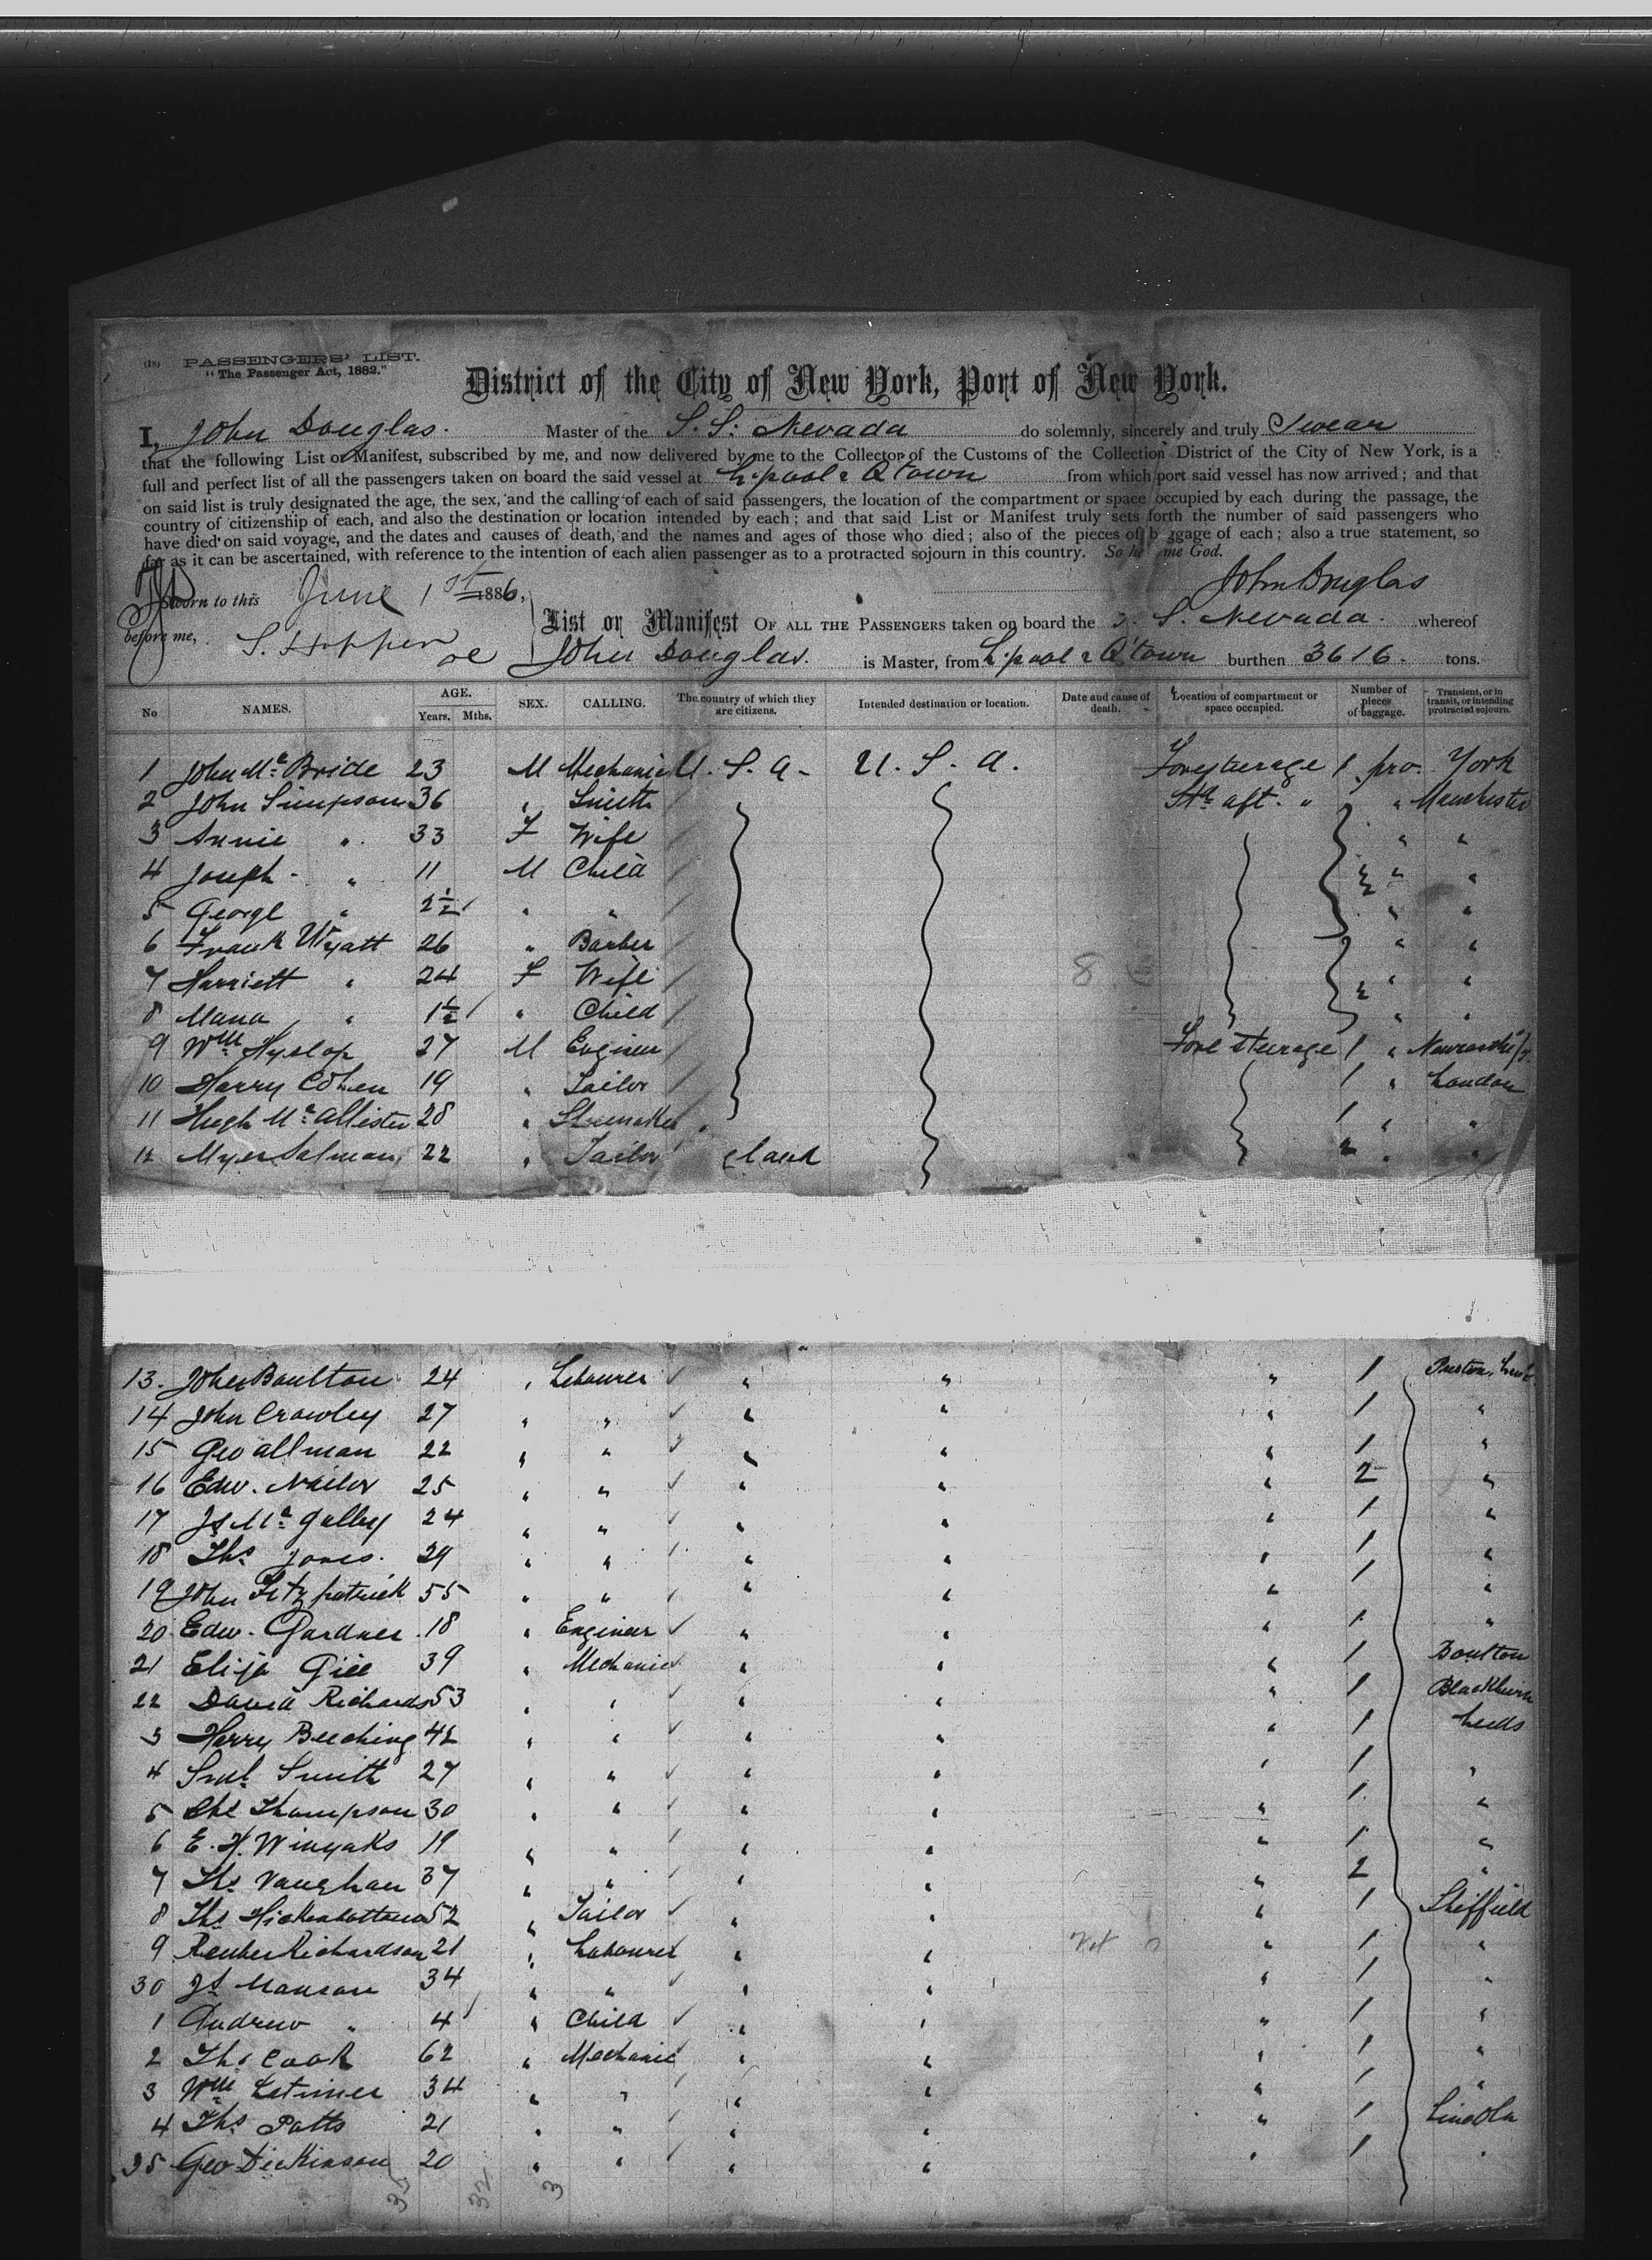 (18) PASSENGERS' LIST.
"The Passenger Act, 1882."
District of the City of New York, Port of New York.
I, John Douglas. Master of the S. S. Nevada do solemnly, sincerely and truly Swear
that the following List or Manifest, subscribed by me, and now delivered by me to the Collector of the Customs of the Collection District of the City of New York, is a
full and perfect list of all the passengers taken on board the said vessel at L'pool & Q'town from which port said vessel has now arrived; and that
on said list is truly designated the age, the sex, and the calling of each of said passengers, the location of the compartment or space occupied by each during the passage, the
country of citizenship of each, and also the destination or location intended by each; and that said List or Manifest truly sets forth the number of said passengers who
have died on said voyage, and the dates and causes of death, and the names and ages of those who died; also of the pieces of baggage of each; also a true statement, so
far as it can be ascertained, with reference to the intention of each alien passenger as to a protracted sojourn in this country. So help me God.
Sworn to this June 1st 1886, John Douglas
before me, S. Hopper
List or Manifest OF ALL THE PASSENGERS taken on board the S. S. Nevada. whereof
John Douglas. is Master, from L'pool & Q'town burthen 3616. tons.
No NAMES. AGE. Years. Mths. SEX. CALLING. The country of which they are citizens. Intended destination or location. Date and cause of death. Location of compartment or space occupied. Number of pieces of baggage. Transient, or in transit, or intending protracted sojourn.
1 John McBride 23 M Mechanic U. S. A. U. S. A. Fore steerage 1 pro. York
2 John Simpson 36 " Smith aft. " " Manchester
3 Annie " 33 F Wife " "
4 Joseph " 11 M Child " "
5 George " 2½ " " " "
6 Frank Wyatt 26 " Barber " "
7 Harriett " 24 F Wife 2 " "
8 " 1½ " Child " "
9 Wm Hyslop 27 M Engineer Fore steerage 1 "
10 Harry Cohen 19 " Tailor 1 " London
11 Hugh McAllister 28 " Shoemaker " 1 " "
12 Myer Salman 22 " Tailor " "
13. John Boulton 24 " Labourer " " " 1 Preston
14 John Crowley 27 " " " " " 1 "
15 Geo Allman 22 " " " " " 1 "
16 Edw. Nailor 25 " " " " " 2 "
17 Js McGalley 24 " " " " " 1 "
18 Ths Jones. 29 " " " " " 1 "
19 John Fitzpatrick 55 " " " " " 1 "
20 Edw. Gardner 18 " Engineer " " " 1 "
21 Elija Gill 39 " Mechanic " " " 1 Boulton
22 David Richards 53 " " " " " 1 Blackburn
3 Harry Beeching 42 " " " " " 1 Leeds
4 Saml Smith 27 " " " " " 1 "
5 Chs Thompson 30 " " " " " 1 "
6 E. H. Winyaks 19 " " " " " 1 "
7 Ths Vaughan 37 " " " " " 2 "
8 Ths Hickenbottom 52 " Tailor " " " 1 Sheffield
9 Reuben Richardson 21 " Labourer " " " 1 "
30 Js Manson 34 " " " " " 1 "
1 Andrew " 4 " Child " " " 1 "
2 Ths Cook 62 " Mechanic " " " 1 "
3 Wm Latimer 34 " " " " " 1 "
4 Ths Potts 21 " " " " " 1 Lincoln
35 Geo Dickinson 20 " " " " " 1 "
35 32 3